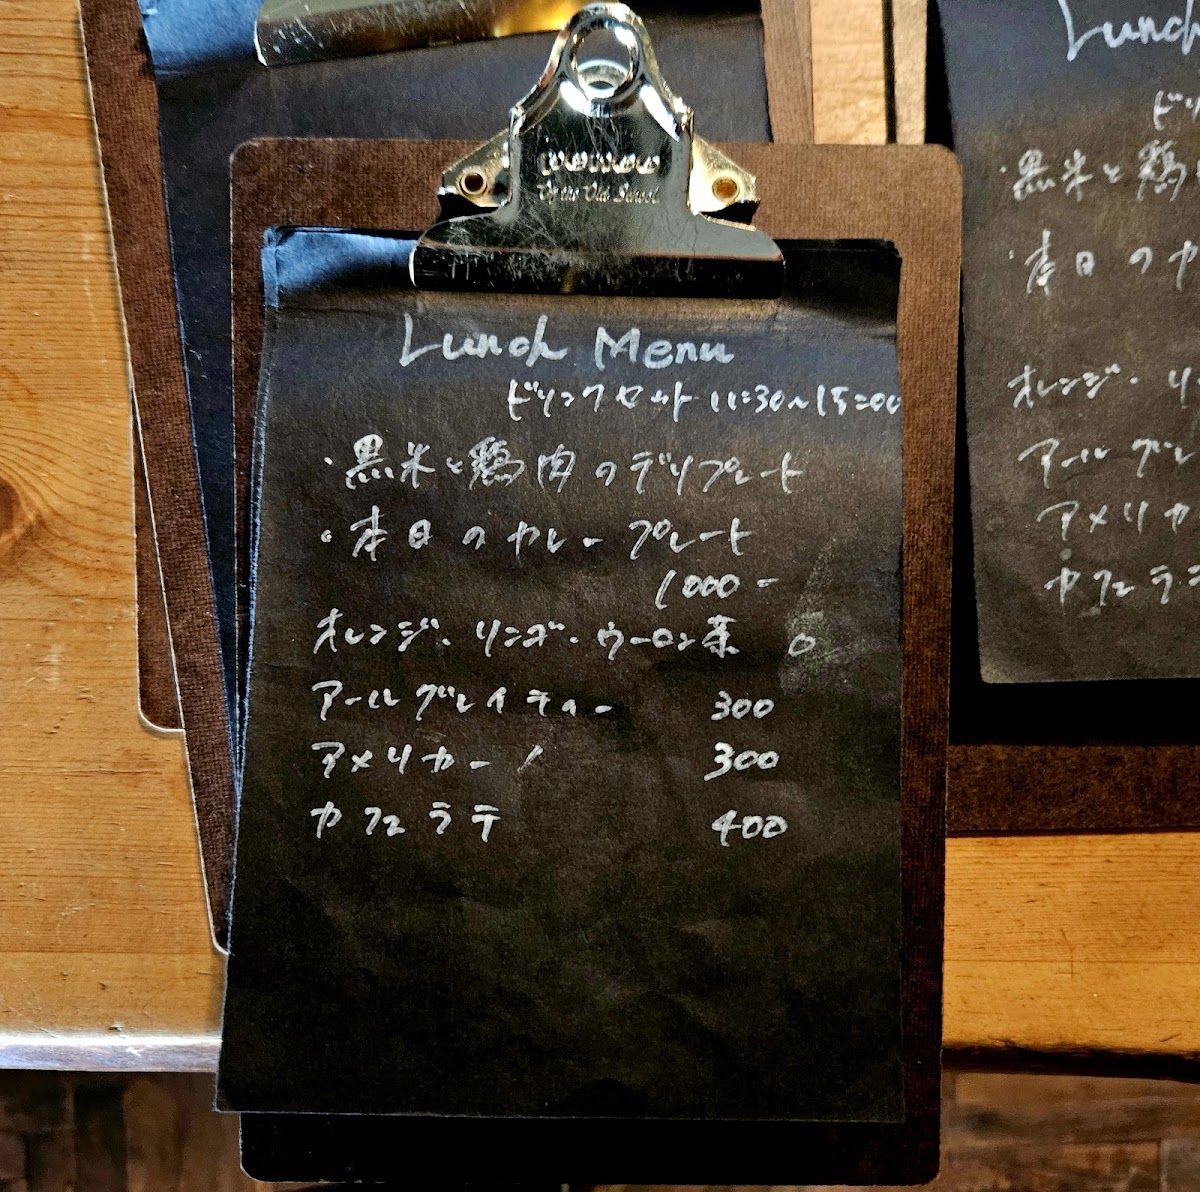 Lunch Menu
ドリンクセット 11:30~15:00
・黒米と鶏肉のデリプレート
・本日のカレープレート
1000-
オレンジ・リンゴ・ウーロン茶 0
アールグレイティー 300
アメリカーノ 300
カフェラテ 400
Lunch
ド
・黒米と鶏
・本日のカ
オレンジ・リ
アールグレ
アメリカ
カフェラテ